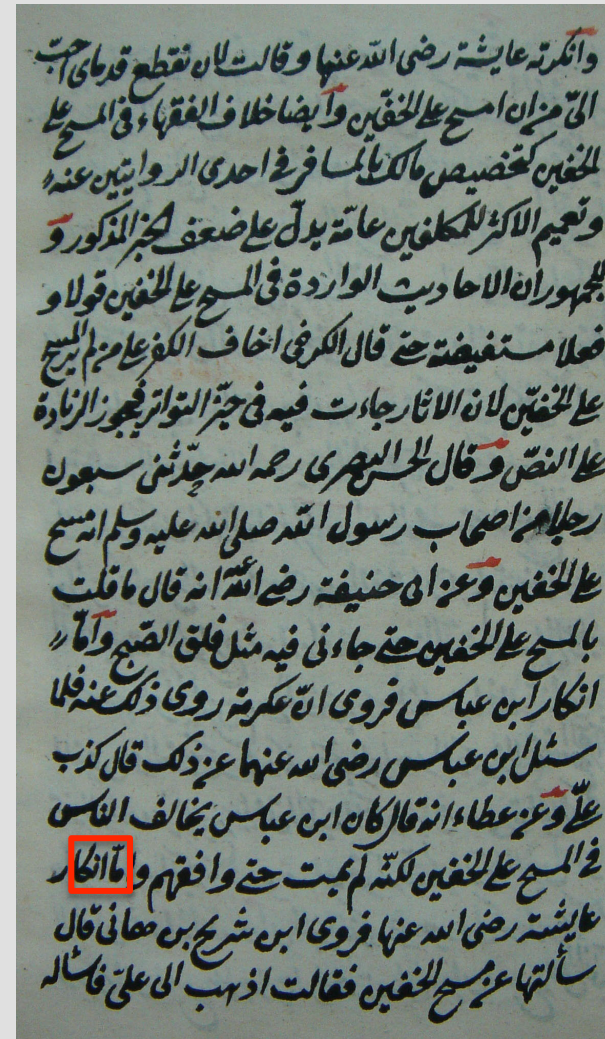 وانكرته عايشة رضى الله عنها وقالت لان تقطع قدماى احبّ
الىّ من ان امسح على الخفّين وأيضا خلاف الفقهاء فى المسح على
الخفين كتخصيص مالك بالمسافر فى احدى الروايتين عنه
وتعميم الاكثر للمكلفين عامّة يدلّ على ضعف الخبر المذكور و
للجمهور ان الاحاديث الواردة فى المسح على الخفين قولا و
فعلا مستفيضة حتى قال الكرخى اخاف الكفر على من لم ير المسح
على الخفّين لان الاثار جاءت فيه فى حيّز التواتر فيجوز الزيادة
على النصّ وقال الحسن البصرى رحمه الله حدّثنى سبعون
رجلا من اصحاب رسول الله صلى الله عليه وسلم انه مسح
على الخفين وعن ابى حنيفة رضى الله انه قال ما قلت
بالمسح على الخفين حتى جاءنى فيه مثل فلق الصّبح وأمّا
انكار ابن عباس فروى انّ عكرمة روى ذلك عنه فلما
سئل ابن عباس رضى الله عنهما عن ذلك قال كذب
علىّ وعن عطاء انه قال كان ابن عباس يخالف الناس
فى المسح على الخفين لكنّه لم يمت حتى وافقهم وامّا انكار
عايشة رضى الله عنها فروى ابن شريح بن هانى قال
سألتها عن مسح الخفين فقالت اذهب الى علىّ فاسئله